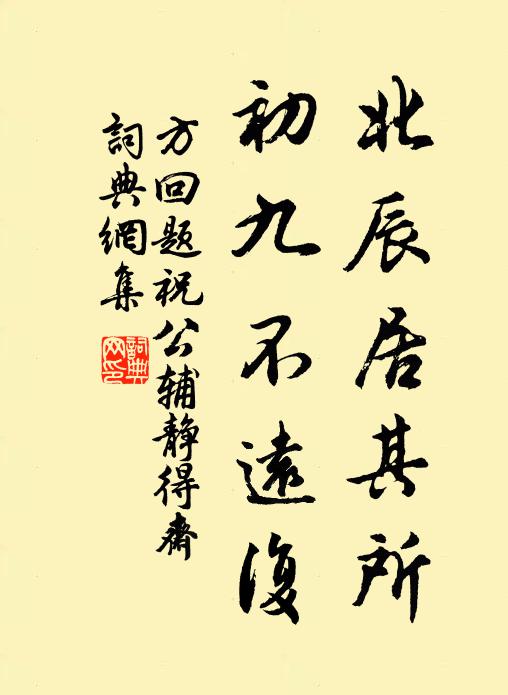 北辰居其所
初九不遠復
方回题祝公辅靜得齋
詞典網集
詞典網印